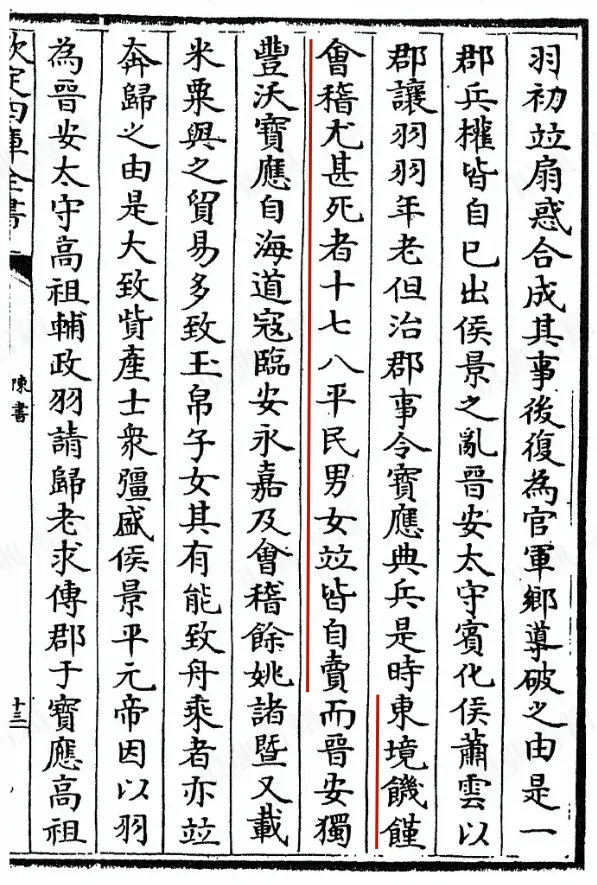 羽初竝扇惑合成其事後復為官軍鄉導破之由是一
郡兵權皆自已出侯景之亂晉安太守賓化侯蕭雲以
郡讓羽羽年老但治郡事令寳應典兵是時東境饑饉
會稽尤甚死者十七八平民男女竝皆自賣而晉安獨
豐沃寳應自海道寇臨安永嘉及會稽餘姚諸暨又載
米粟與之貿易多致玉帛子女其有能致舟乘者亦竝
奔歸之由是大致貲產士衆彊盛侯景平元帝因以羽
為晉安太守高祖輔政羽請歸老求傳郡于寳應高祖
欽定四庫全書
陳書
十三